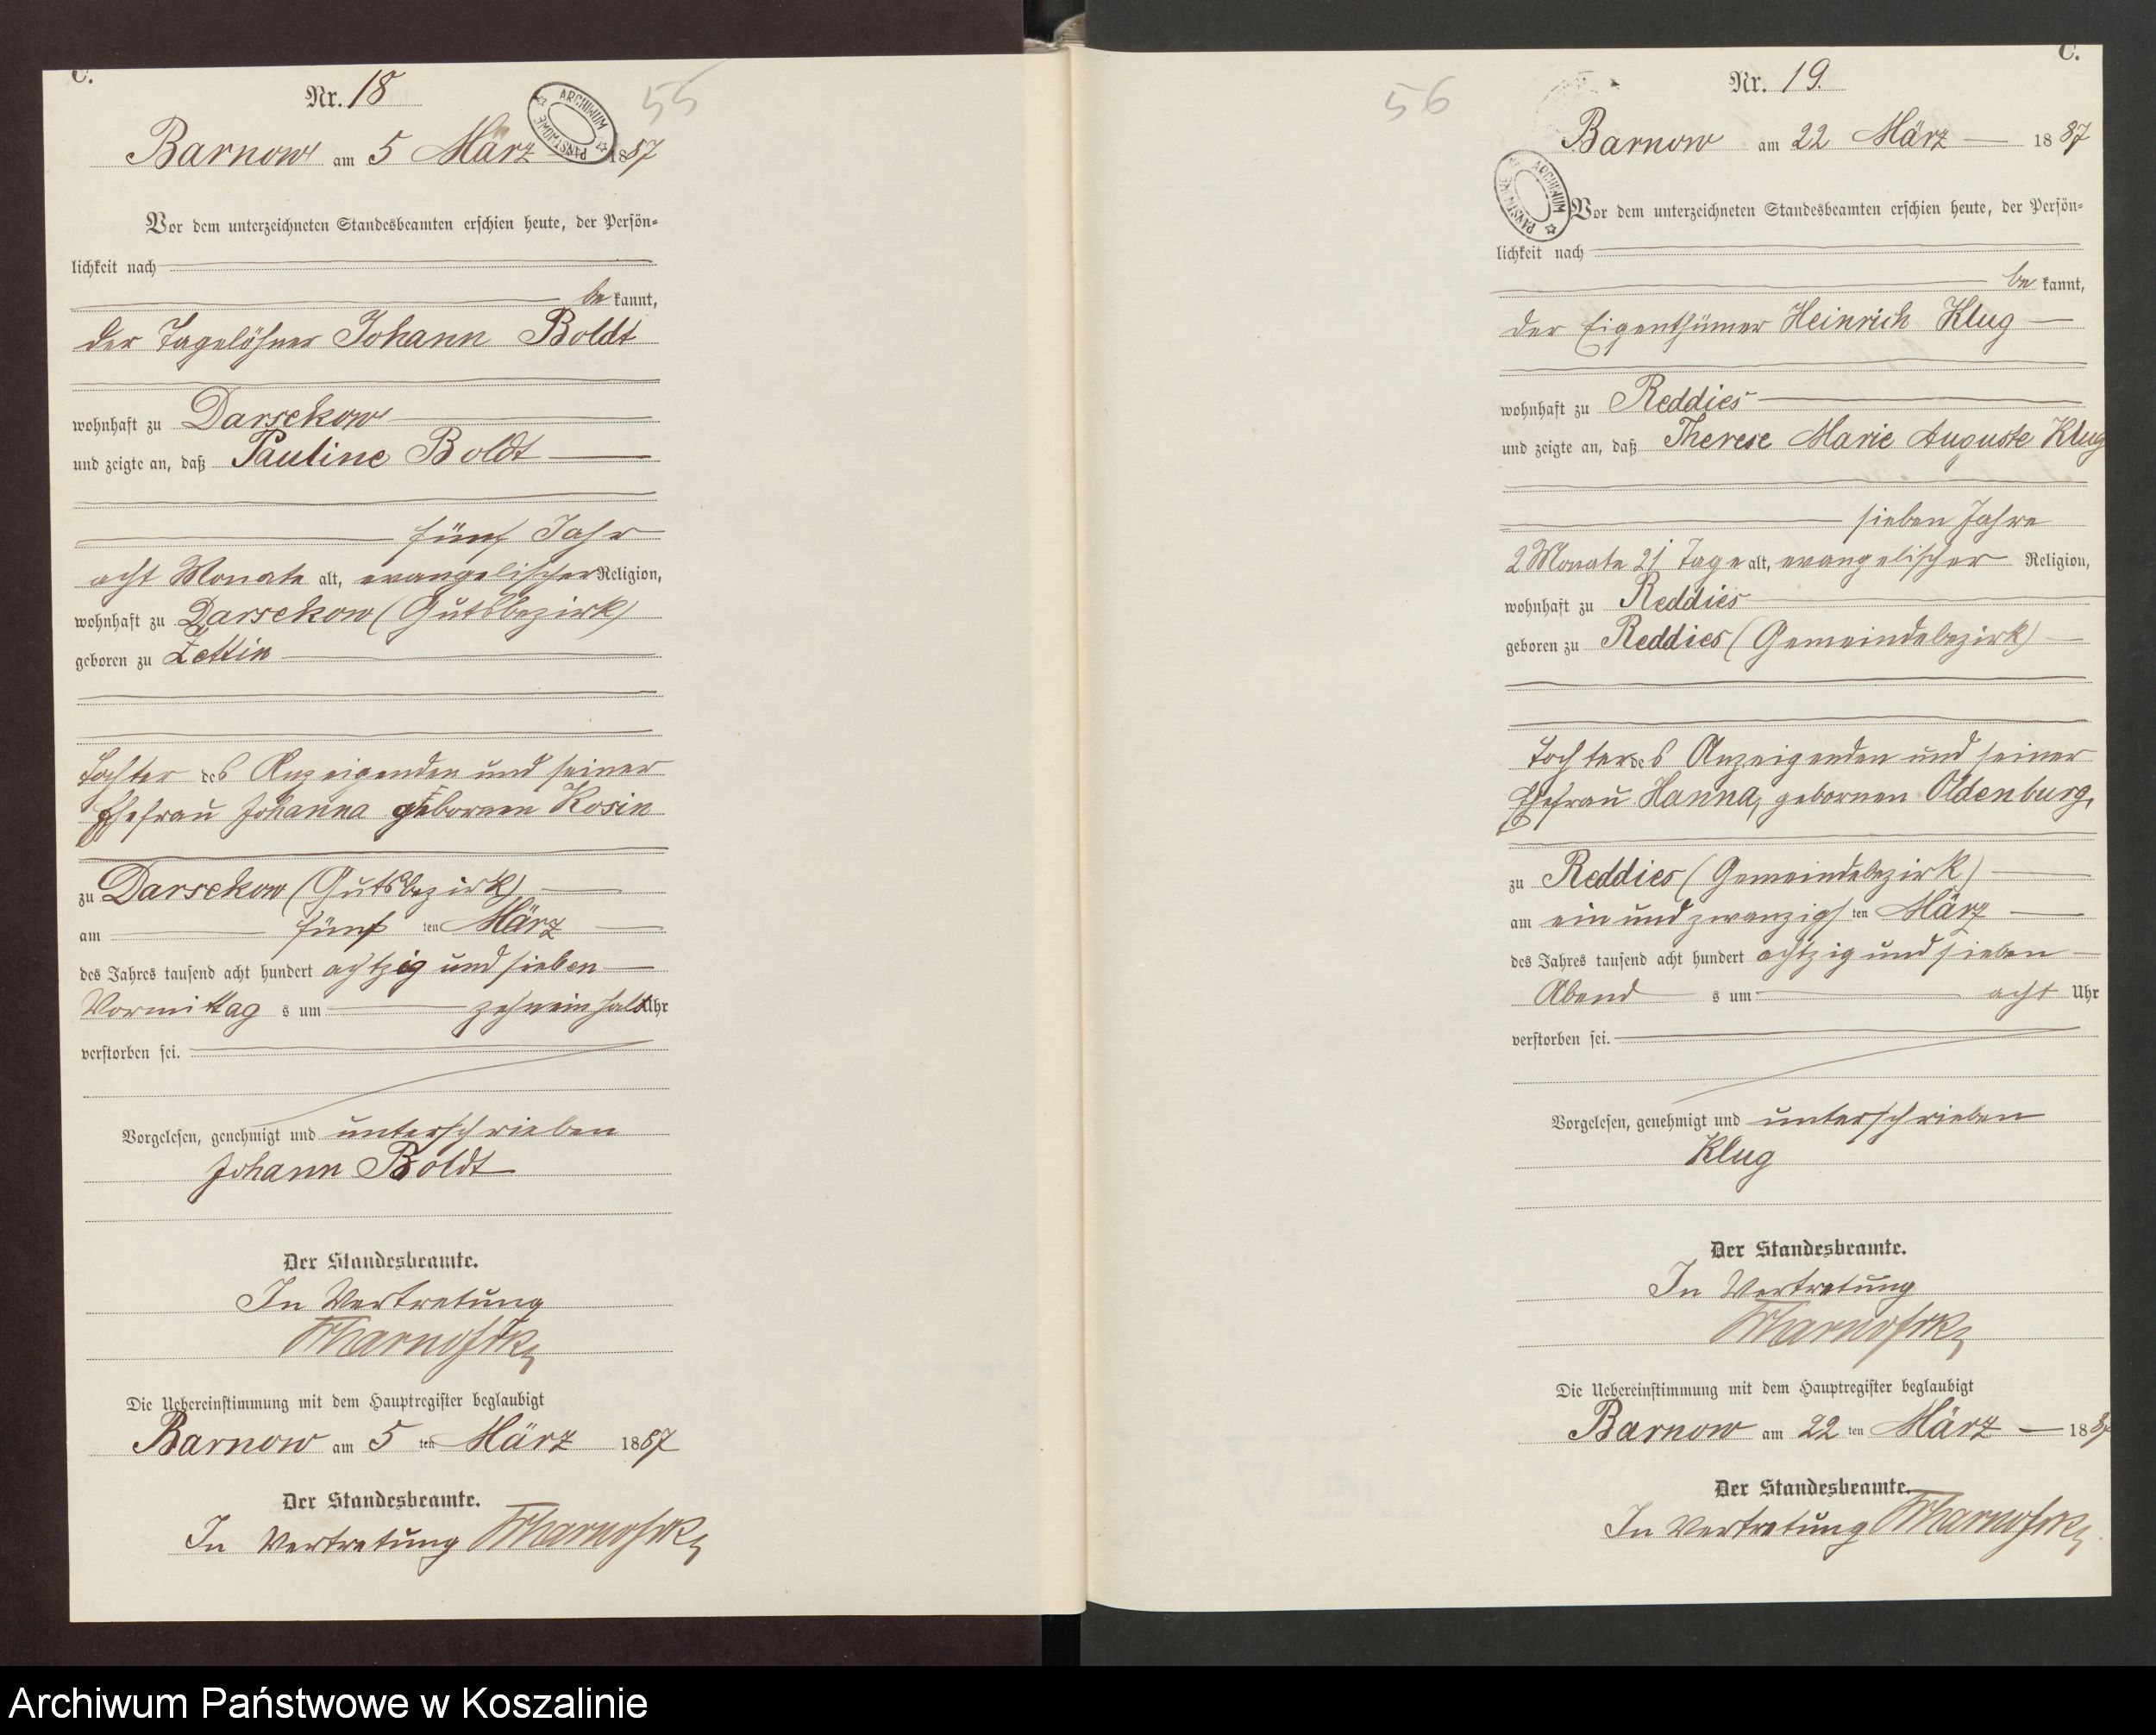 C.
Nr. 18
55
ARCHIWUM PAŃSTWOWE
Barnow am 5 März 1887
Vor dem unterzeichneten Standesbeamten erschien heute, der Persön=
lichkeit nach
be kannt,
der Tagelöhner Johann Boldt
wohnhaft zu Darsekow
und zeigte an, daß Pauline Boldt
fünf Jahr
acht Monate alt, evangelischer Religion,
wohnhaft zu Darsekow (Gutsbezirk)
geboren zu Zettin
Tochter des Anzeigenden und seiner
Ehefrau Johanna gebornen Kosin
zu Darsekow (Gutsbezirk)
am fünf ten März
des Jahres tausend acht hundert achtzig und sieben
Vormittag s um zehneinhalb Uhr
verstorben sei.
Vorgelesen, genehmigt und unterschrieben
Johann Boldt
Der Standesbeamte.
In Vertretung
Die Uebereinstimmung mit dem Hauptregister beglaubigt
Barnow am 5 ten März 1887
Der Standesbeamte.
In Vertretung
C.
Nr. 19.
56
ARCHIWUM PAŃSTWOWE
Barnow am 22 März 1887
Vor dem unterzeichneten Standesbeamten erschien heute, der Persön=
lichkeit nach
be kannt,
der Eigenthümer Heinrich Klug
wohnhaft zu Reddies
und zeigte an, daß Therese Marie Auguste Klug
sieben Jahre
2 Monate 21 Tage alt, evangelischer Religion,
wohnhaft zu Reddies
geboren zu Reddies (Gemeindebezirk)
Tochter des Anzeigenden und seiner
Ehefrau Hanna, gebornen Oldenburg,
zu Reddies (Gemeindebezirk)
am ein und zwanzigs ten März
des Jahres tausend acht hundert achtzig und sieben
Abend s um acht Uhr
verstorben sei.
Vorgelesen, genehmigt und unterschrieben
Klug
Der Standesbeamte.
In Vertretung
Die Uebereinstimmung mit dem Hauptregister beglaubigt
Barnow am 22 ten März 1887
Der Standesbeamte.
In Vertretung
Archiwum Państwowe w Koszalinie